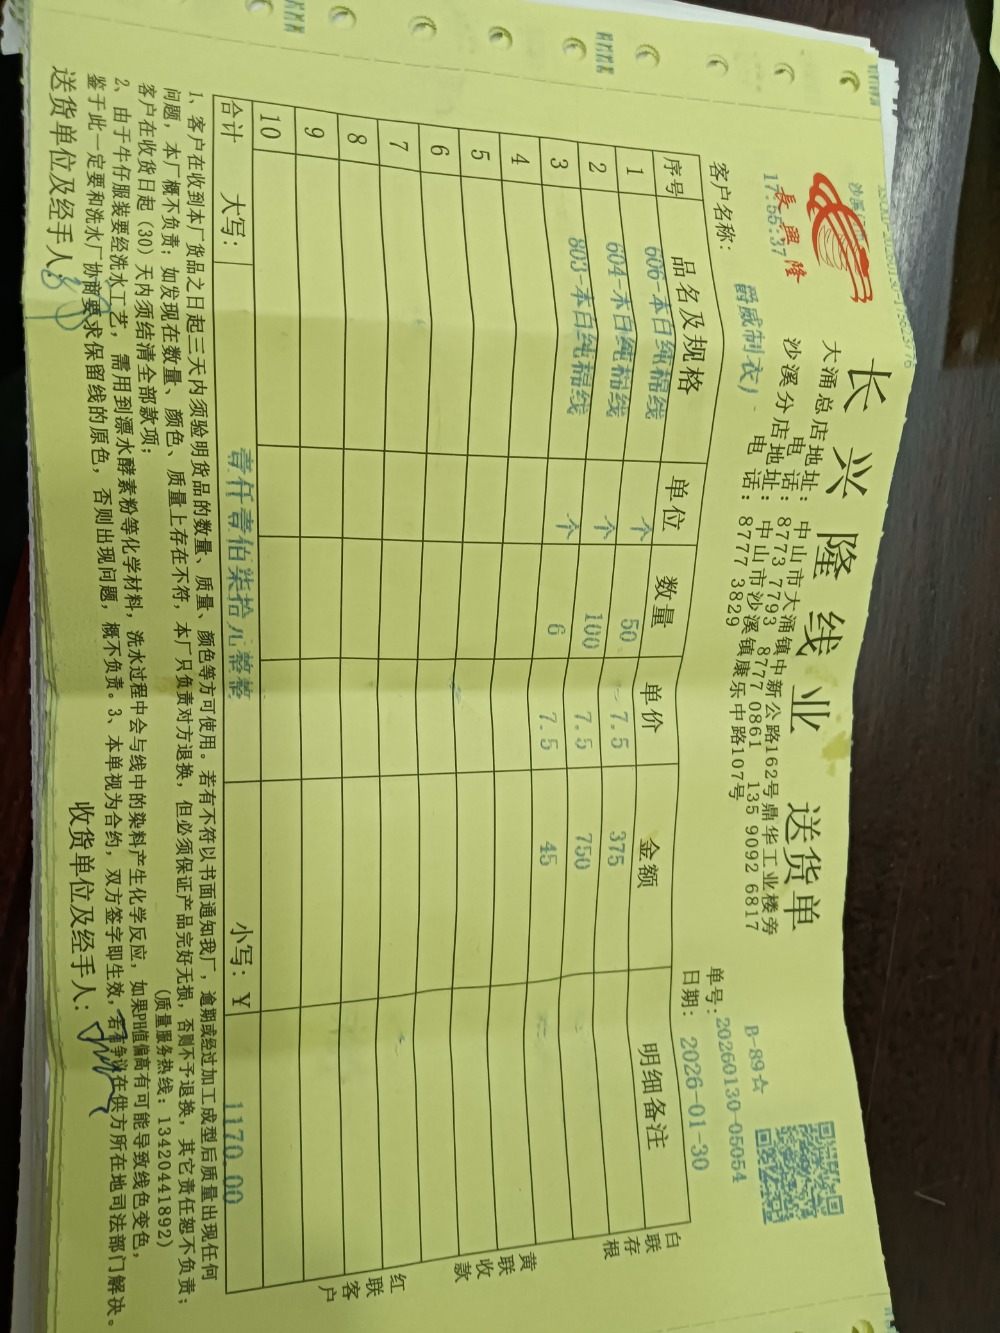 长兴隆线业 送货单
長興隆
17:55:37
大涌总店地址: 中山市大涌镇中新公路162号鼎华工业楼旁
电 话: 8773 7793 8777 0861 135 9092 6817
沙溪分店地址: 中山市沙溪镇康乐中路107号
电 话: 8777 3829
B-89☆
单号: 20260130-05054
客户名称: 爵威制衣) 日期: 2026-01-30
序号 品名及规格 单位 数量 单价 金额 明细备注
1 606-本白纯棉线 个 50 7.5 375
2 604-本白纯棉线 个 100 7.5 750
3 803-本白纯棉线 个 6 7.5 45
4
5
6
7
8
9
10
合计 大写: 壹仟壹佰柒拾元整 小写: ¥ 1170.00
白联存根
黄联收款
红联客户
1、客户在收到本厂货品之日起三天内须验明货品的数量、质量、颜色等方可使用。若有不符以书面通知我厂,逾期或经过加工成型后质量出现任何
问题,本厂概不负责;如发现在数量、颜色、质量上存在不符,本厂只负责对方退换,但必须保证产品完好无损,否则不予退换,其它责任恕不负责;
客户在收货日起(30)天内须结清全部款项; (质量服务热线: 13420441892)
2、由于牛仔服装要经洗水工艺,需用到漂水酵素粉等化学材料,洗水过程中会与线中的染料产生化学反应,如果PH值偏高有可能导致线色变色,
鉴于此一定要和洗水厂协商要求保留线的原色,否则出现问题,概不负责。3、本单视为合约,双方签字即生效,若有争议在供方所在地司法部门解决。
送货单位及经手人: 收货单位及经手人: